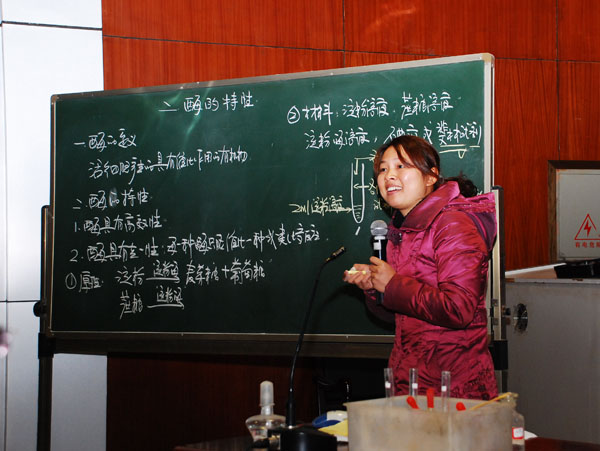 二 酶的特性
一. 酶的定义
活细胞产生的具有催化作用的有机物
二. 酶的特性
1. 酶具有高效性
2. 酶具有专一性: 每一种酶只能催化一种或一类化学反应
① 原理: 淀粉 淀粉酶 麦芽糖+葡萄糖
蔗糖 淀粉酶
② 材料: 淀粉溶液 蔗糖溶液
淀粉酶溶液,
2ml 淀粉溶液